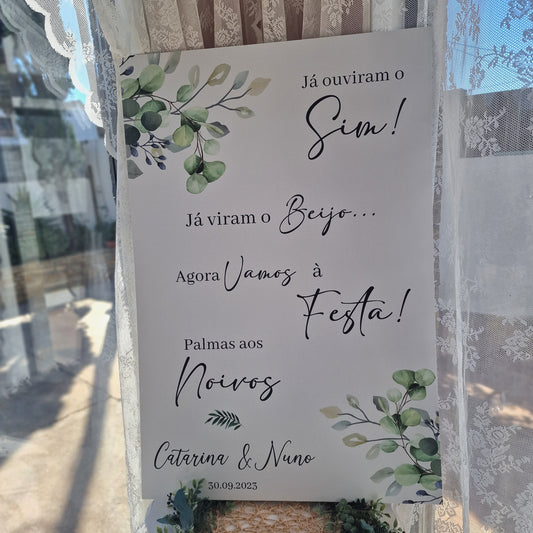 Já ouviram o
Sim!
Já viram o Beijo...
Agora Vamos à
Festa!
Palmas aos
Noivos
Catarina & Nuno
30.09.2023